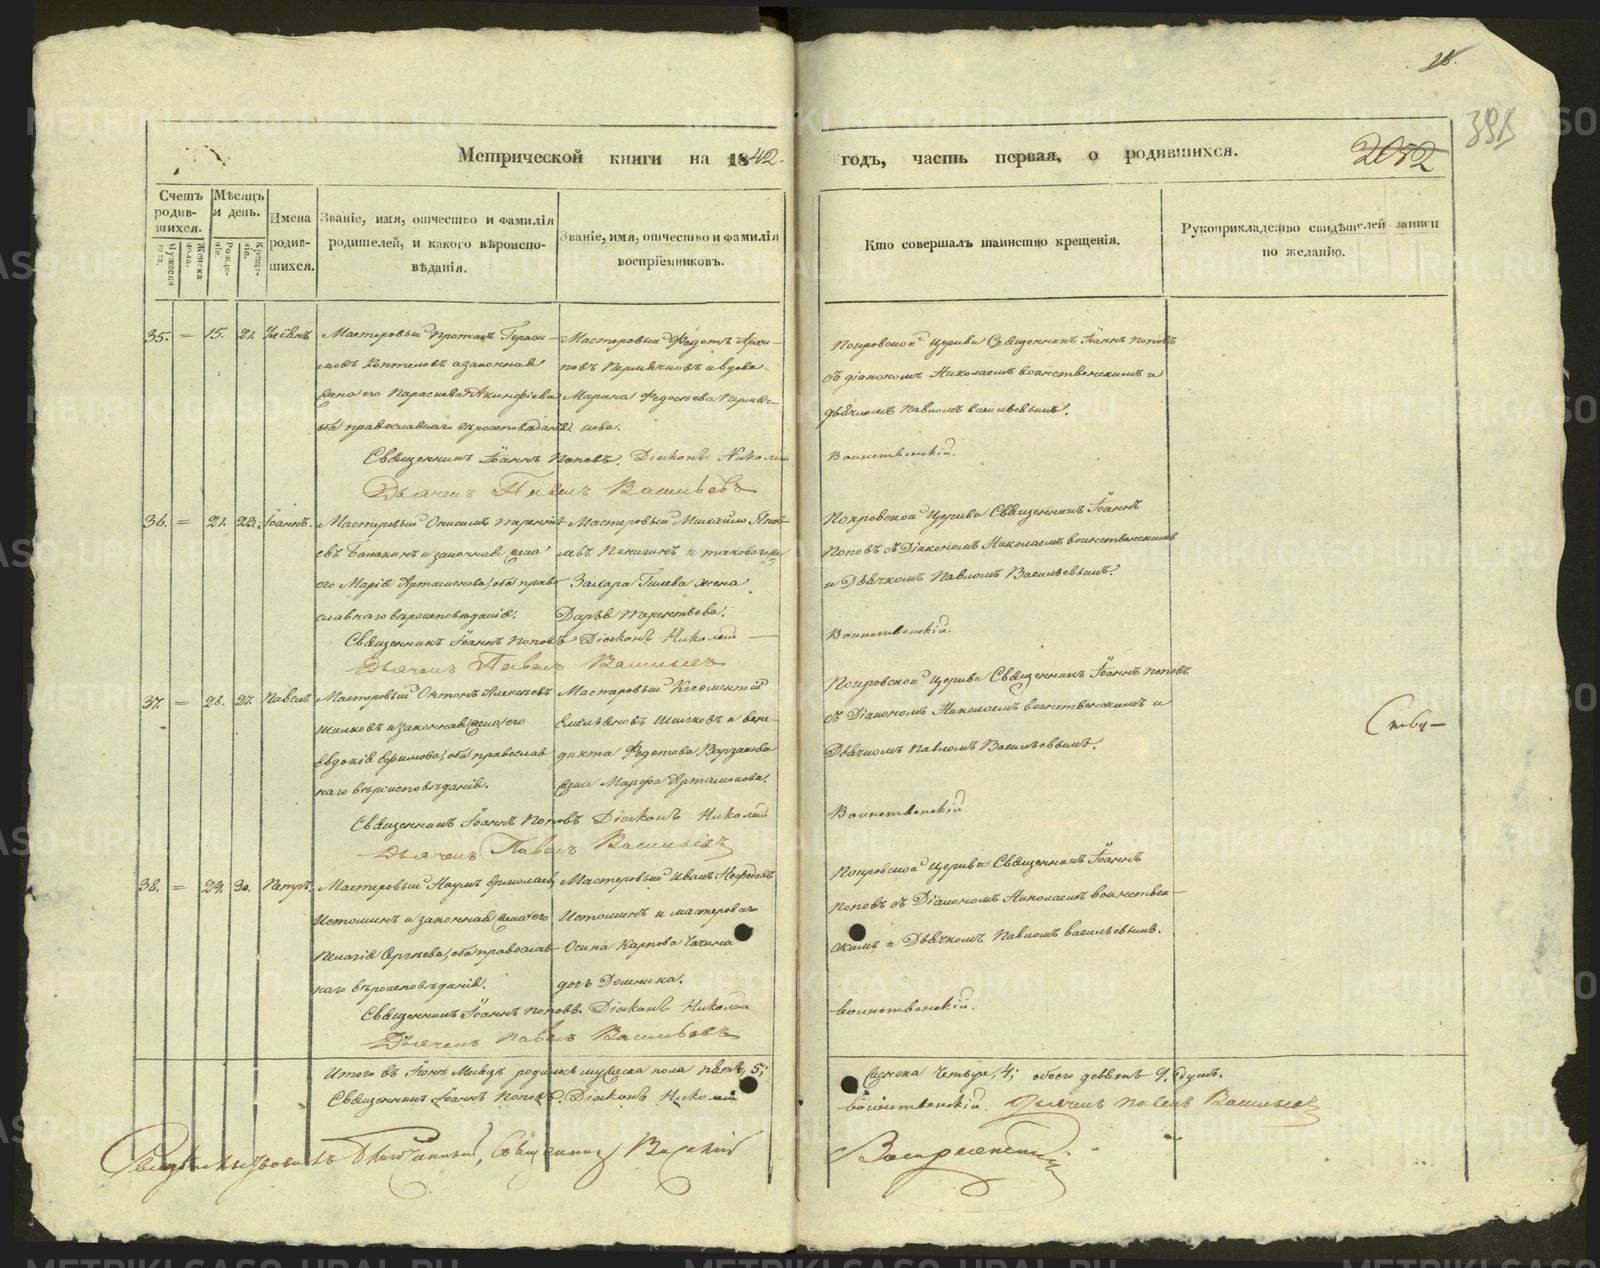 28.
Метрической книги на 1842. годъ, часть первая, о родившихся.
2052
Счетъ родившихся.
Мужеска пола.
Женска пола.
Мѣсяцъ и день.
Рожденіе.
Крещеніе.
Имена родившихся.
Званіе, имя, отчество и фамилія родителей, и какого вѣроисповѣданія.
Званіе, имя, отчество и фамилія воспріемниковъ.
Кто совершалъ таинство крещенія.
Рукоприкладство свидѣтелей записи по желанію.
35. = 15. 21.
Мастеровый
законная
жена его Параскева Акинфіева
оба православнаго вѣроисповѣданія
Мастеровый Федотъ Архи-
повъ Пермяковъ и вдова
Марина Федосѣева Пермяч-
кова.
Покровской церкви Священникъ Іоаннъ Поповъ
съ діакономъ Николаемъ Воинственскимъ и
дьячкомъ Павломъ Васильевымъ.
Священникъ Іоаннъ Поповъ. Діаконъ Николай Воинственскій.
Дьячекъ Павелъ Васильевъ
36. = 21. 23. Іоаннъ.
Мастеровый Онисимъ Терентъ-
евъ Балакинъ и законная жена
его Марія Артамонова, оба право-
славнаго вѣроисповѣданія.
Мастеровый Михайло Яков-
левъ Пичигинъ и таковаго же
Захара Гилева жена
Дарья Терентьева.
Покровской церкви Священникъ Іоаннъ
Поповъ съ Діакономъ Николаемъ Воинственскимъ
и Дьячкомъ Павломъ Васильевымъ.
Священникъ Іоаннъ Поповъ Діаконъ Николай — Воинственскій.
Дьячекъ Павелъ Васильевъ
37. = 27. Павелъ.
Мастеровый Антонъ Алексѣевъ
Шилковъ и законная жена его
Евдокія Ефимова, оба православ-
наго вѣроисповѣданія.
Мастеровый Климентій
Емельяновъ Шилковъ и Вене-
дикта Федотова Варзакова
жена Марфа Артамонова.
Покровской церкви Священникъ Іоаннъ Поповъ
съ Діакономъ Николаемъ Воинственскимъ и
Дьячкомъ Павломъ Васильевымъ.
Священникъ Іоаннъ Поповъ Діаконъ Николай Воинственскій.
Дьячекъ Павелъ Васильевъ
38. = 29. 30. Петръ.
Мастеровый Наумъ Ермолаевъ
Истоминъ и законная жена его
Пелагія Сергѣева, оба православ-
наго вѣроисповѣданія.
Мастеровый Иванъ Нефедовъ
Истоминъ и мастероваго
Осипа Карпова
дочь Домника.
Покровской церкви Священникъ Іоаннъ
Поповъ съ Діакономъ Николаемъ Воинствен-
скимъ и Дьячкомъ Павломъ Васильевымъ.
Священникъ Іоаннъ Поповъ. Діаконъ Николай Воинственскій.
Дьячекъ Павелъ Васильевъ
Итого въ Іюнѣ Мѣсяцѣ родилось мужеска пола пять, 5; женска четыре, 4; обоего девять 9. душъ.
Священникъ Іоаннъ Поповъ. Діаконъ Николай Воинственскій. Дьячекъ Павелъ Васильевъ
Благочинный, Священникъ
METRIKI.GASO-URAL.RU